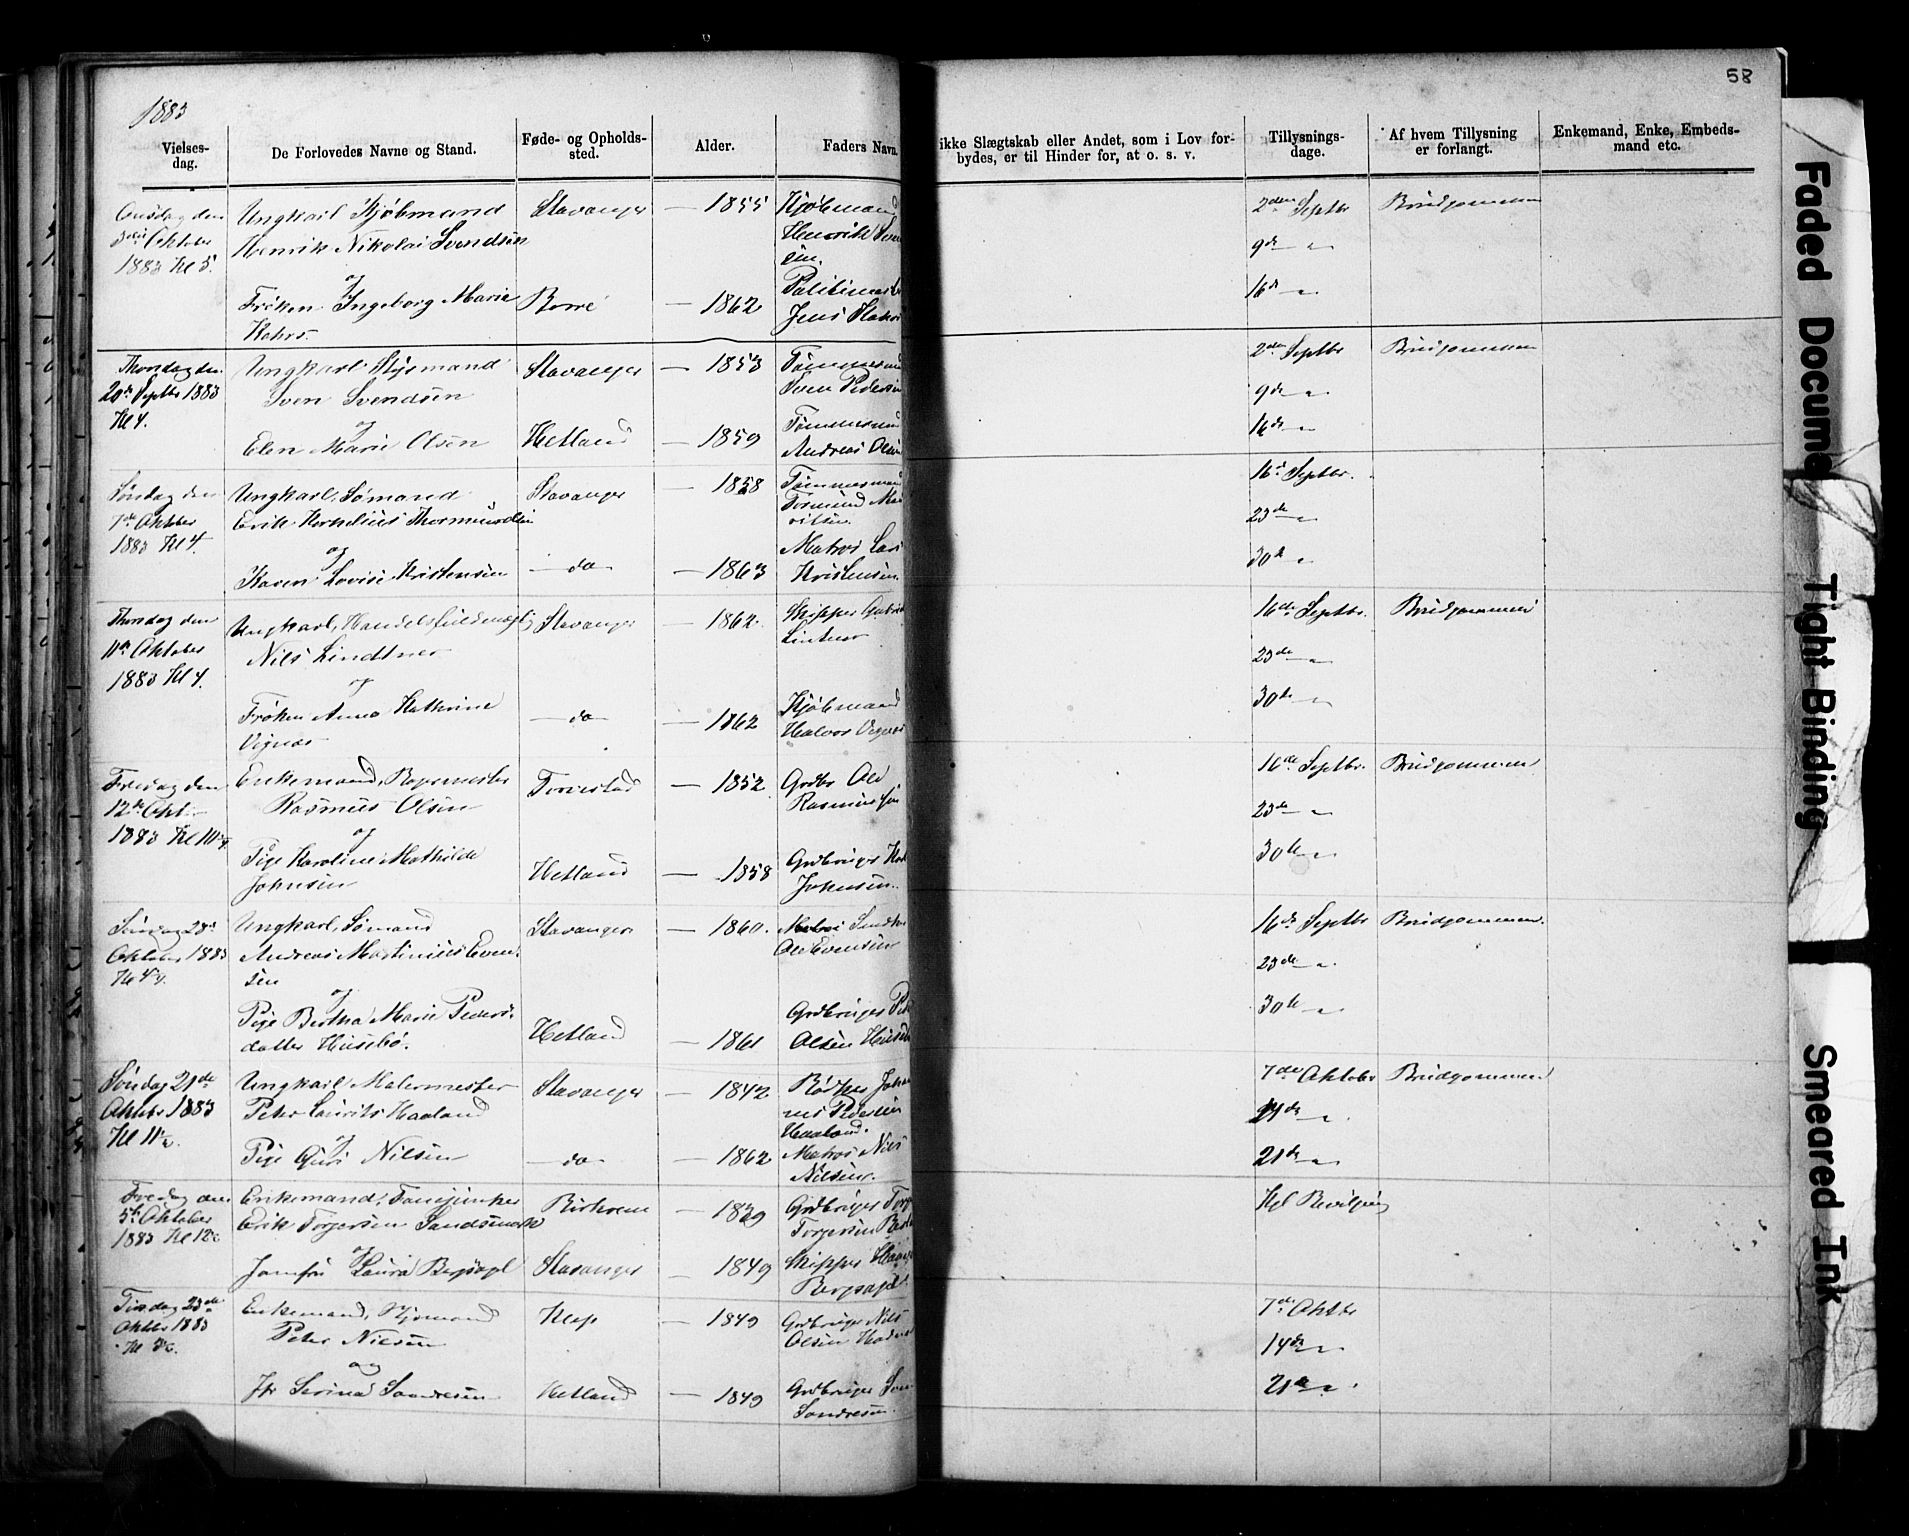 58
1883
Vielses-
dag.
De Forlovedes Navne og Stand.
Føde- og Opholds-
sted.
Alder.
Faders Navn.
ikke Slægtskab eller Andet, som i Lov for-
bydes, er til Hinder for, at o. s. v.
Tillysnings-
dage.
Af hvem Tillysning
er forlangt.
Enkemand, Enke, Embeds-
mand etc.
Onsdag den
3die Oktober
1883 Kl 5.
Ungkarl Kjøbmand
Henrik Nikolai Svendsen
og
Frøken Ingeborg Marie
Stavanger — 1855
Borre — 1862
Kjøbmand
Henrik Sven
sen.
Politimester
Jens
2den Septbr Brudgommen
9de — " —
16de — " —
Thorsdag den
20de Septbr 1883
Kl 4.
Ungkarl Styrmand
Sven Svendsen
og
Elen Marie Olsen
Stavanger — 1853
Hetland — 1859
Tømmermand
Sven Pedersen
Tømmermand
Andreas Olsen
2den Septbr Brudgommen
9de — " —
16de — " —
Søndag den
7de Oktober
1883 Kl 4.
Ungkarl, Sømand
Erik Kornelius Thormundsen
og
Karen Lovise Kristensen
Stavanger — 1858
— do — — 1863
Tømmermand
Tormund
Matros Lars
Kristensen
16de Septbr.
23de — " —
30te — " —
Thorsdag den
11te Oktober
1883 Kl 4.
Ungkarl, Handelsfuldmægtig
Nils Lindtner
og
Frøken Anna Kathrine
Vignæs
Stavanger — 1862.
— do — — 1862
Skipper Gabriel
Lintner
Kjøbmand
Halvor
16de Septbr. Brudgommen
23de — " —
30te — " —
Fredag den
12te Oktr
1883 Kl
Enkemand,
Rasmus Olsen
og
Pige Karoline Mathilde
Johnsen
Torvestad — 1852
Hetland — 1858
Grdbr Ole
Rasmussen
Grdbruger
Johnsen.
16de Septbr. Brudgommen
23de — " —
30te — " —
Søndag 28de
Oktober 1883
Ungkarl, Sømand
Andreas Martinius Even-
sen
og
Pige Bertha Marie Peders-
datter Husebø.
Stavanger — 1860.
Hetland — 1861
Matros
Ole Evensen
Grdbruger Peder
Olsen Husebø
16de Septbr Brudgommen.
23de — " —
30te — " —
Søndag 21de
Oktbr 1883
Kl 11
Ungkarl Malermester
Peter Laurits Haaland
og
Pige Guri Nilsen
Stavanger — 1842
— do — — 1862
Bødker Johan
nes Pedersen
Haaland.
Matros Nils
Nilsen.
7de Oktober Brudgommen
— " —
21de — " —
Fredag den
5te Oktober
1883 Kl 12
Enkemand, Fanejunker
Erik Torgersen Sandsmark
og
Jomfru Laura Bergsagel
— 1839
Stavanger — 1849
Grdbruger Torger
Torgersen
Skipper
Bergsagel
Kgl Bevilgning
Tirsdag 23de
Oktbr 1883
Enkemand, Styrmand
Peter Nilsen
og
Jfr Serina Sandresen
Klep — 1849
Hetland — 1849
Grdbruger Nils
Olsen
Grdbruger
Sandresen.
7de Oktbr
14de — " —
21de — " —
Faded Document
Tight Binding
Smeared Ink